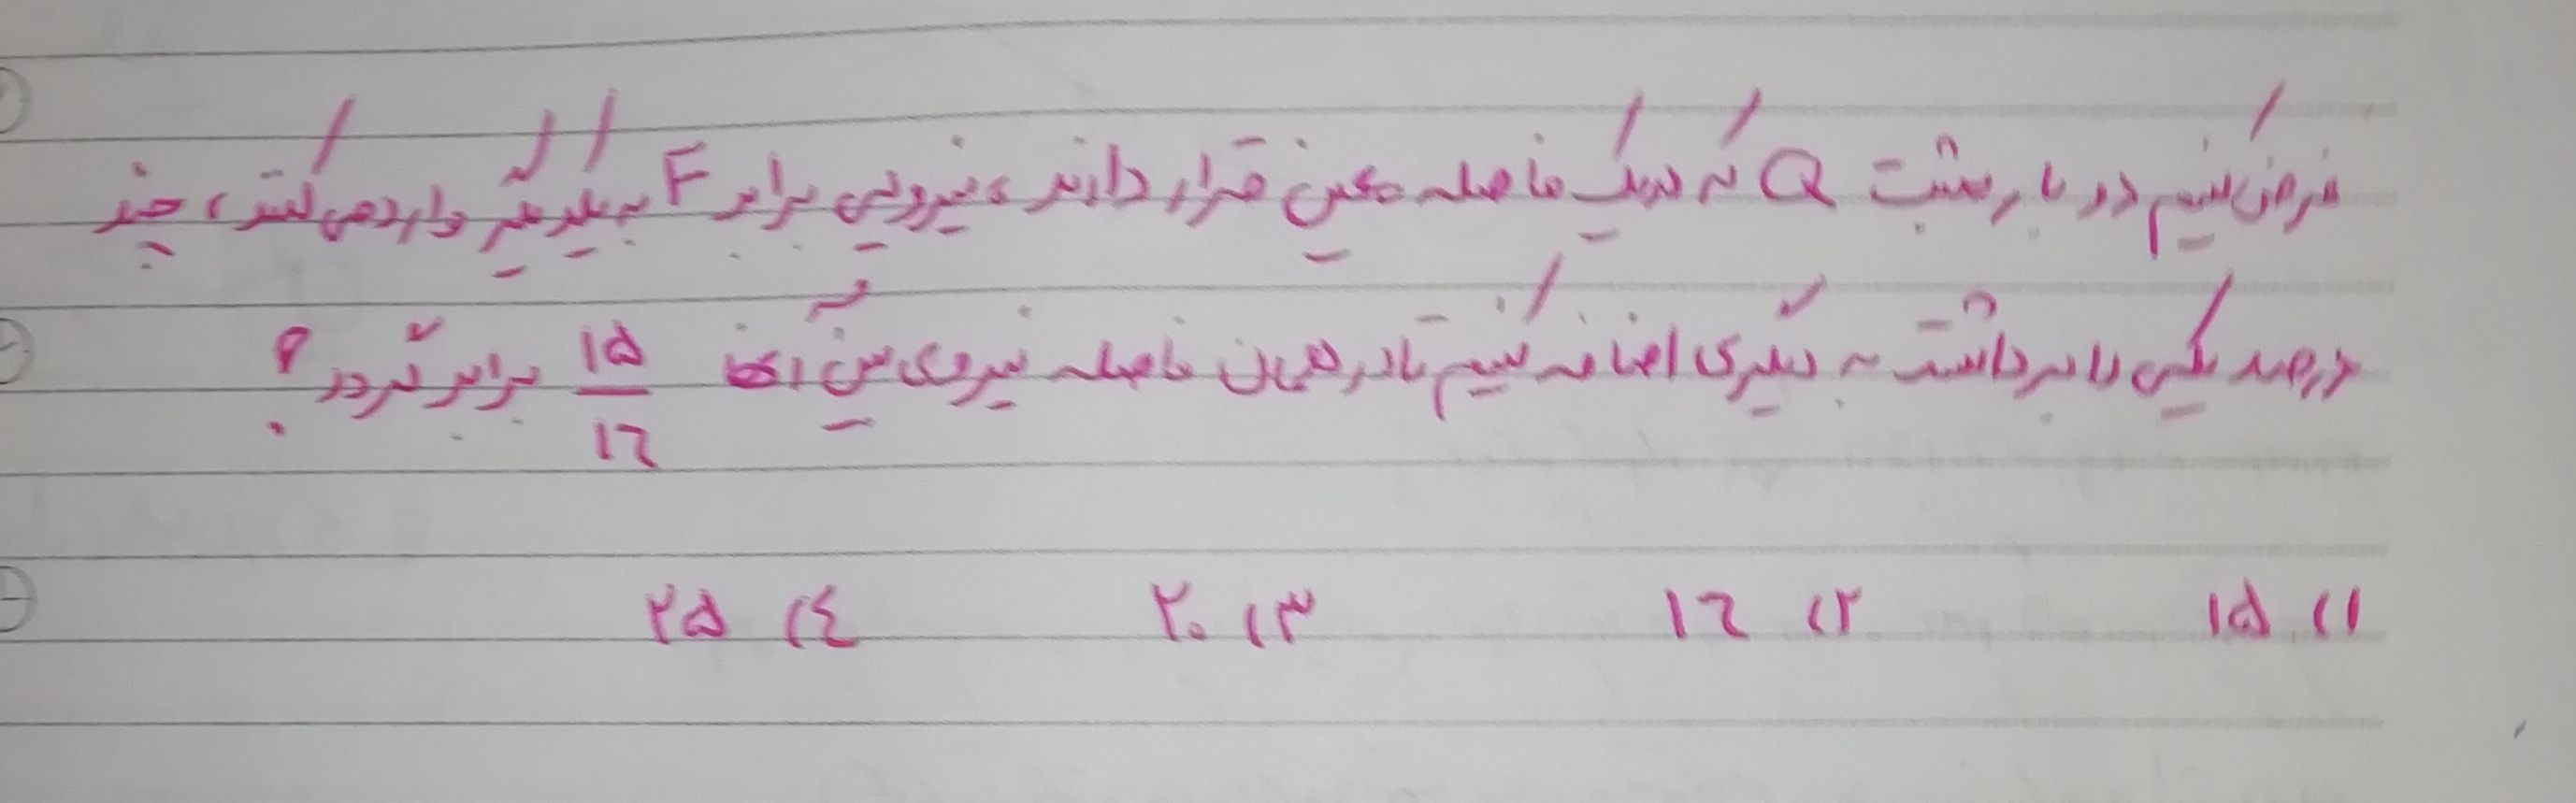 فرض کنیم دو بار مثبت Q که در یک فاصله معین قرار دارند، نیرویی برابر F به یکدیگر وارد می‌کنند، چند
درصد یکی را برداشته به دیگری اضافه کنیم تا در همان فاصله نیروی بین آنها ۱۵/۱۶ برابر گردد؟
۱) ۱۵ ۲) ۱۶ ۳) ۲۰ ۴) ۲۵